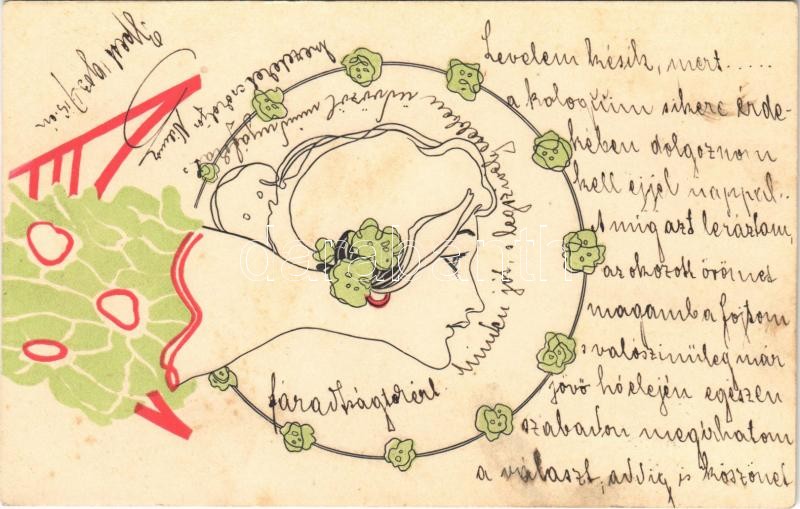 Levelem késik, mert.....
a kologŭim sikere érde-
kében dolgoznom
kell éjjel nappal..
A míg azt leráztam,
az okozott örömet
magamba fojtom
s valószinüleg mar
jövö hó elején egeszen
szabadon megirhatom
a választ, addig is köszönet
fáradtságtokért
minden jót, s legszivélyesebben üdvözöl mindnyájatokat
kezeleteket csókolja
Ipest 1903
darabanth